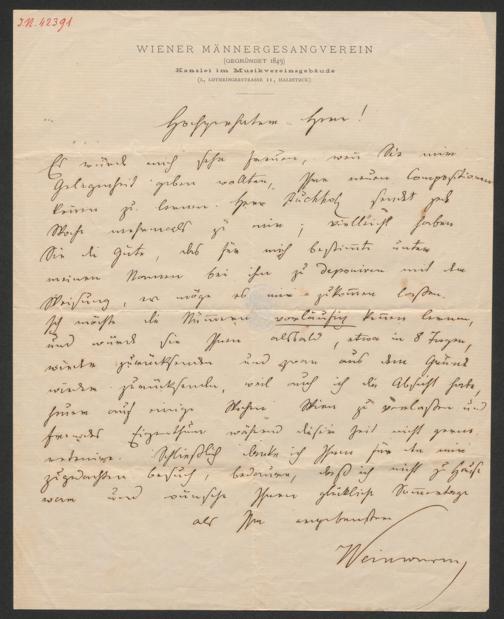 I.N. 42391
WIENER MÄNNERGESANGVEREIN
(GEGRÜNDET 1843)
Kanzlei im Musikvereinsgebäude
(I., LOTHRINGERSTRASSE 11, HALBSTOCK)
Hochgeehrter Herr!
Es würde mich sehr freuen, wenn Sie mir
Gelegenheit geben wollten, Ihre neuen Compositionen
kennen zu lernen. Herr Buchholz sendet jede
Woche mehrmals zu mir; vielleicht haben
Sie die Güte, das für mich bestimmte unter
meinem Namen bei ihm zu deponiren mit der
Weisung, er möge es mir zukommen lassen.
Ich möchte die Nummern vorläufig kennen lernen,
und würde sie Ihnen alsbald, etwa in 8 Tagen,
wieder zurücksenden und zwar aus dem Grund
wieder zurücksenden, weil auch ich die Absicht habe,
heuer auf einige Wochen Wien zu verlassen und
fremdes Eigenthum während dieser Zeit nicht gerne
Schließlich danke ich Ihnen für den mir
zugedachten Besuch, bedaure, daß ich nicht zu Hause
war und wünsche Ihnen glückliche Sommertage
als Ihr ergebenster
Weinwurm